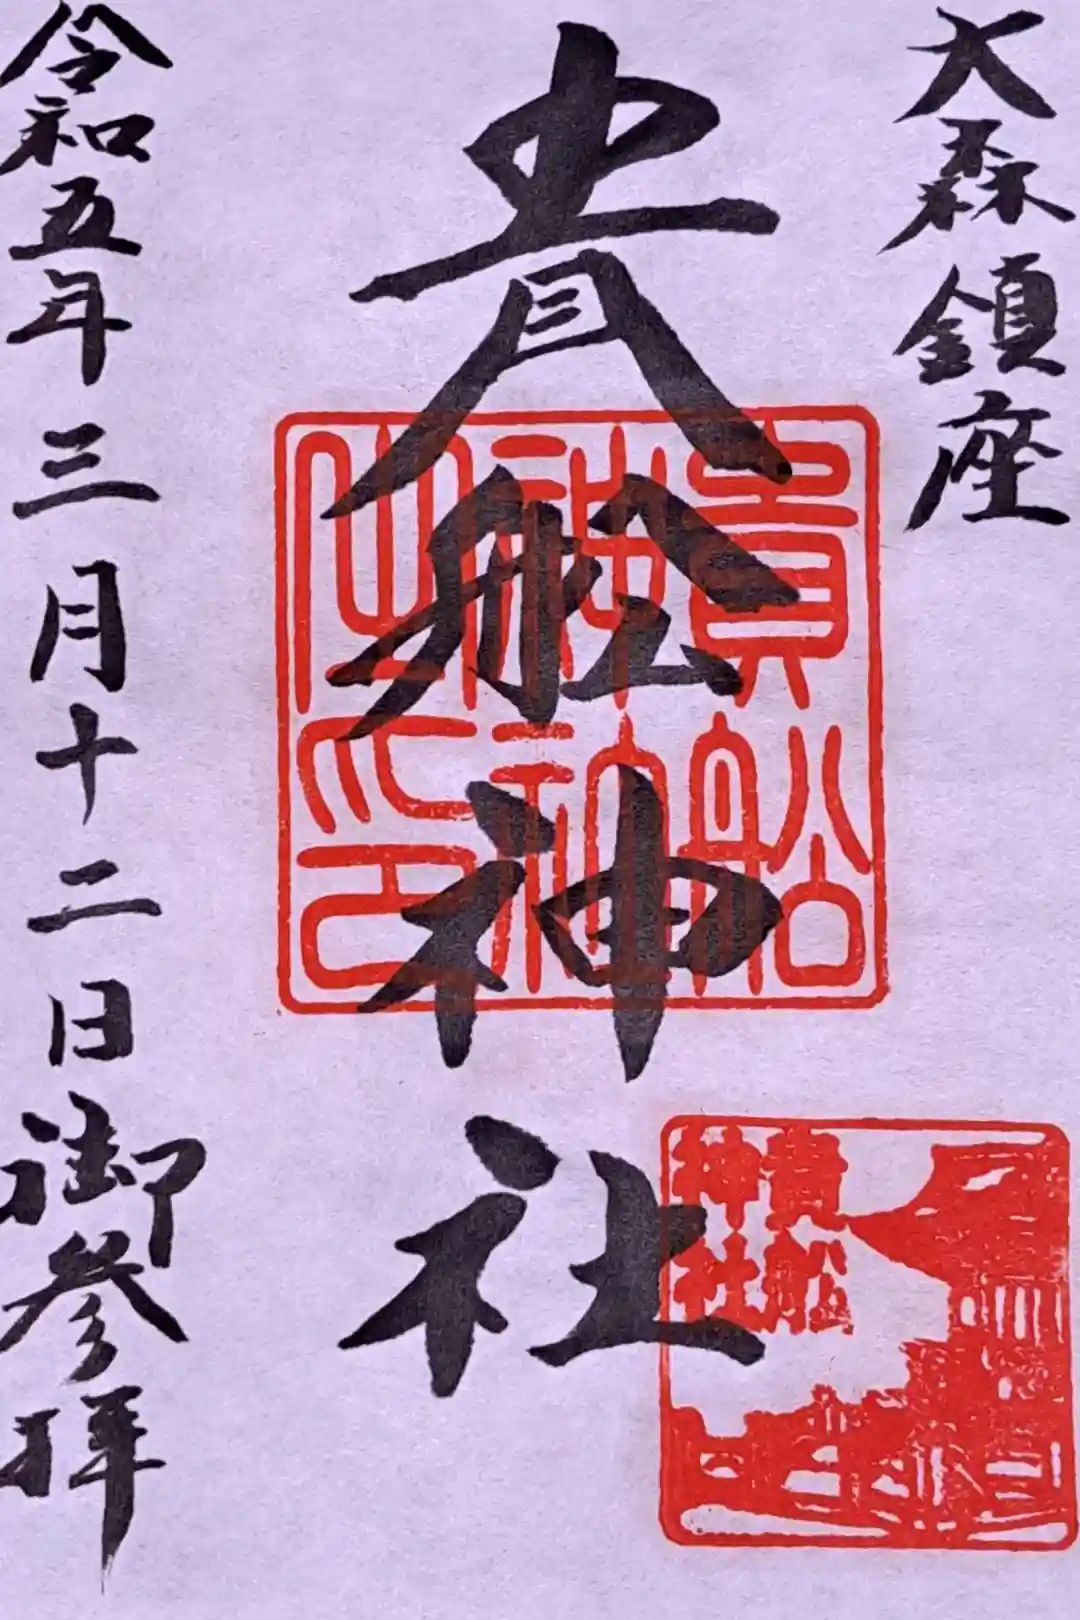 大森鎮座
貴舩神社
令和五年三月十二日御参拝
貴舩
神社
之印
貴舩
神社